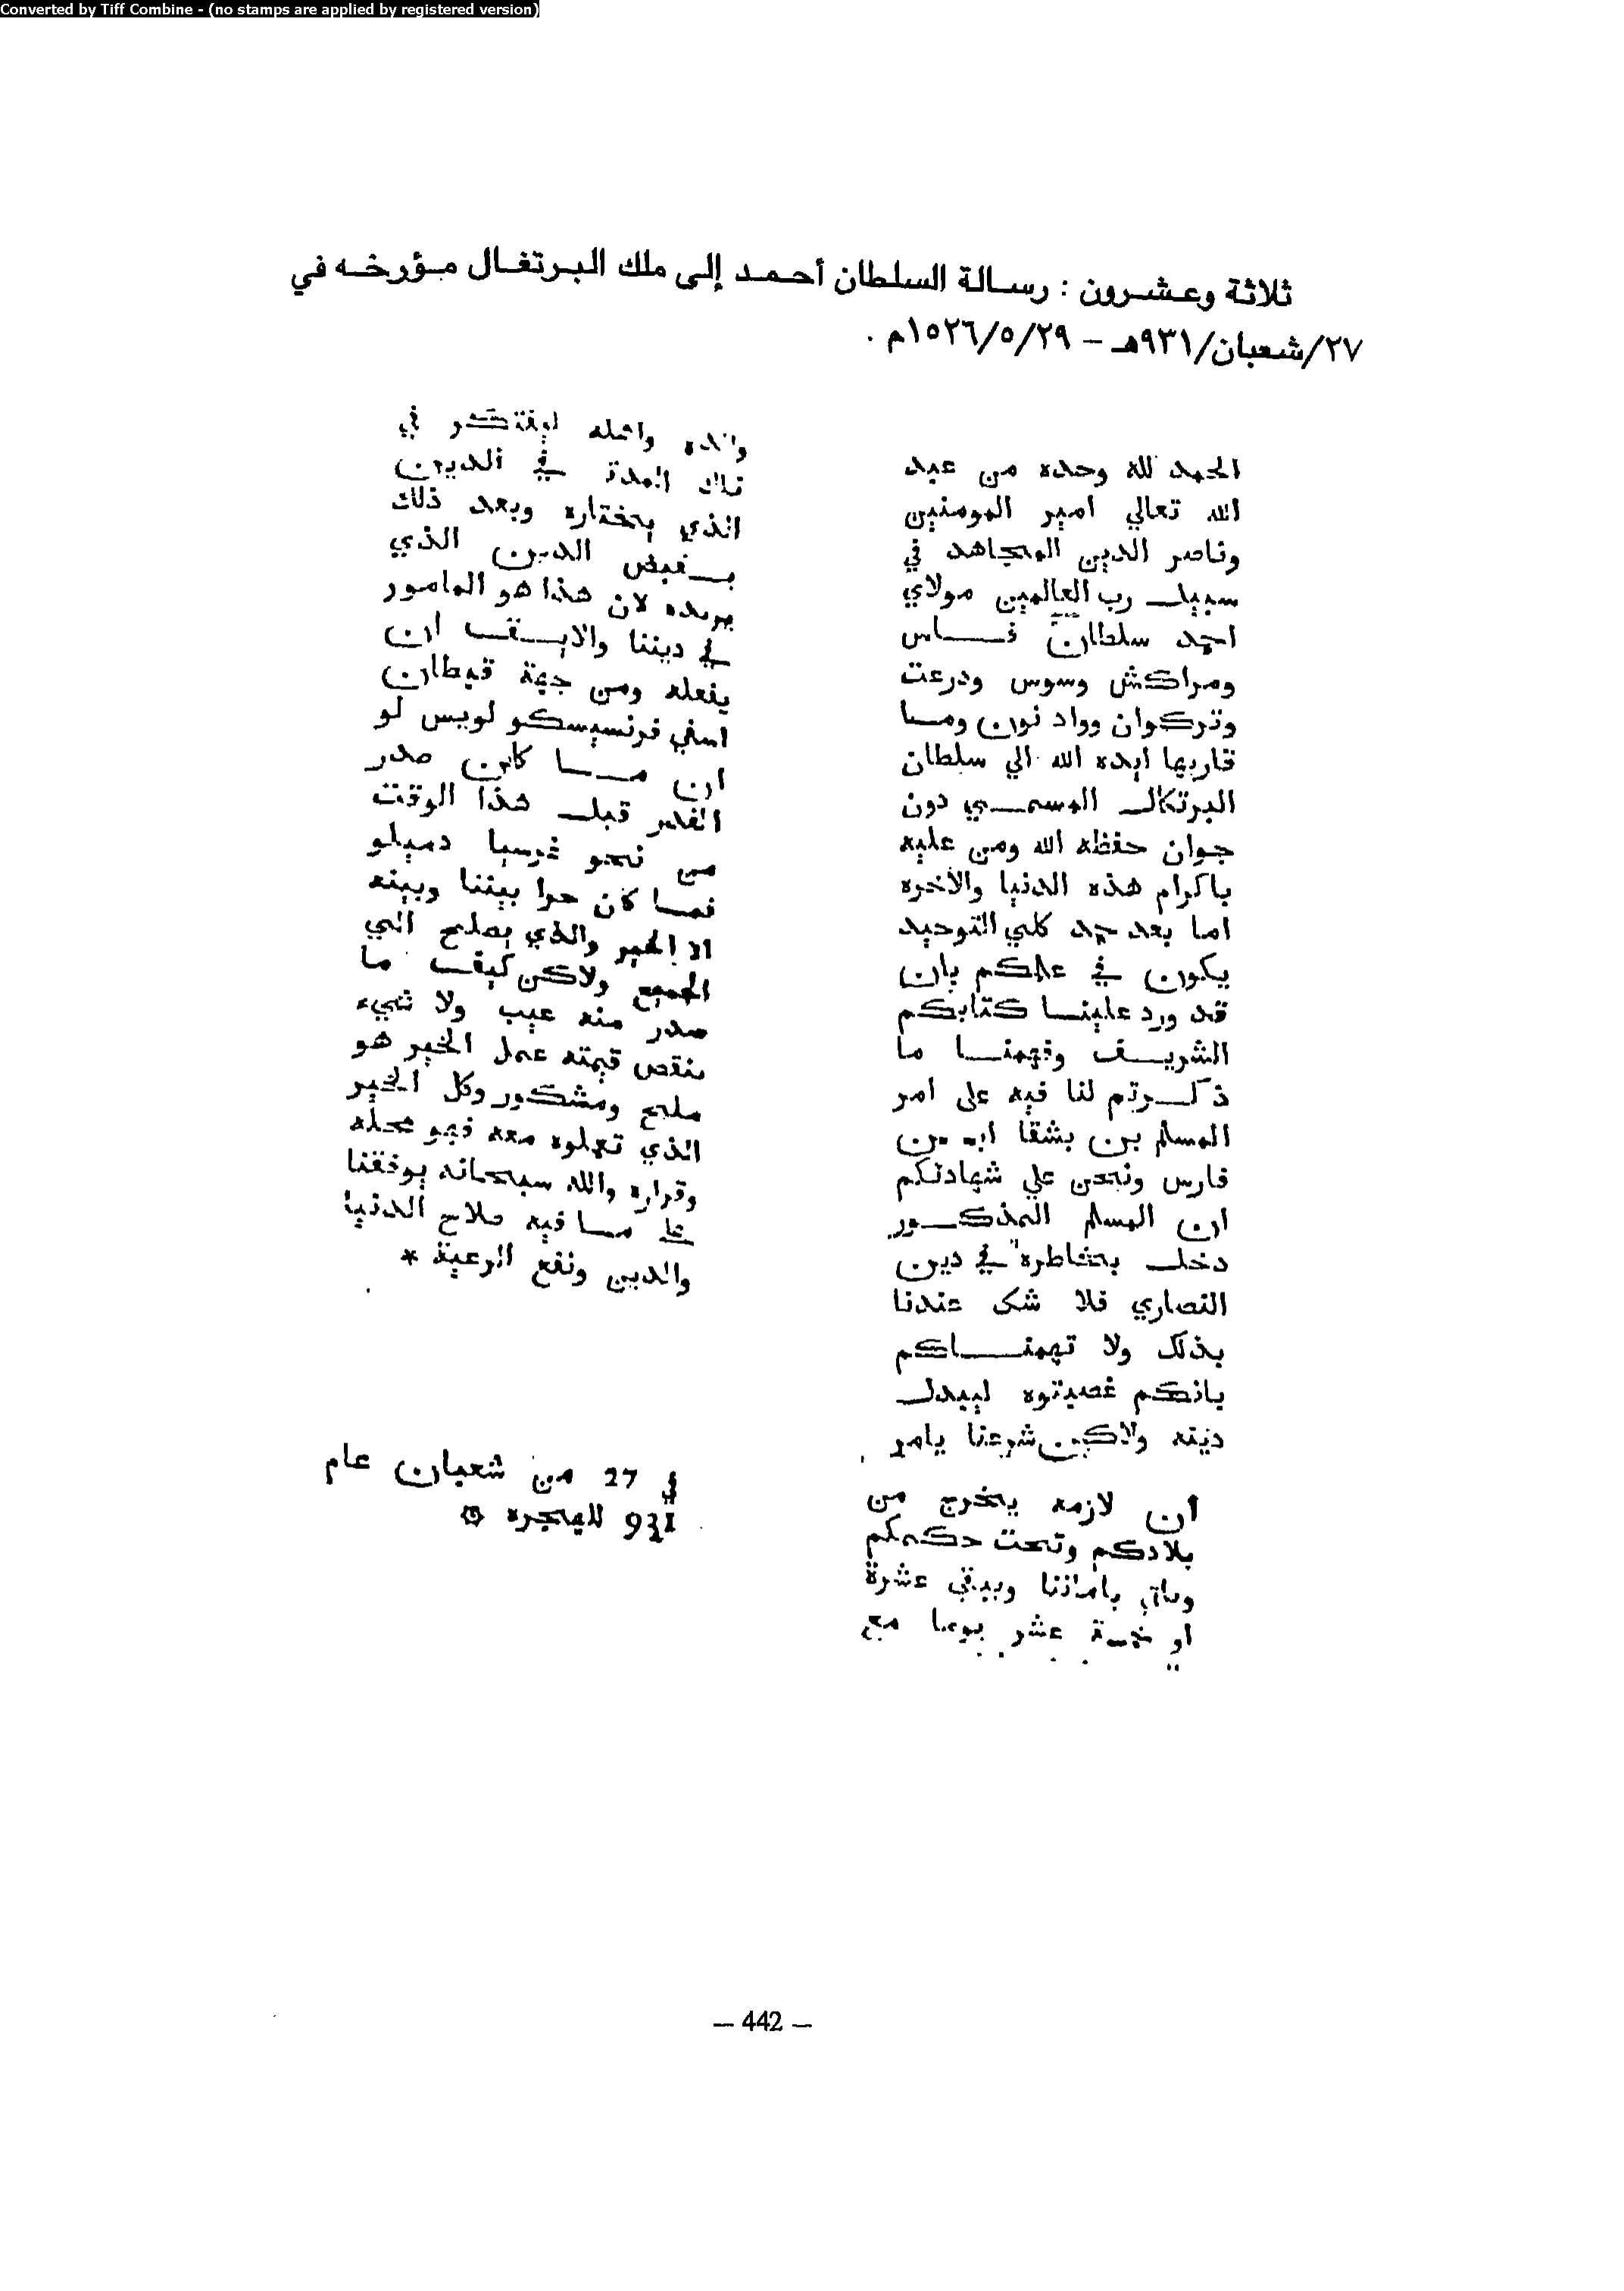 Converted by Tiff Combine - (no stamps are applied by registered version)
ثلاثة وعشرون : رسالة السلطان أحمد إلى ملك البرتغال مؤرخه في
٢٧/شعبان/٩٣١هـ – ١٥٢٦/٥/٢٩م .
الحمد لله وحده من عبد
الله تعالي امير المومنين
وناصر الدين المجاهد في
سبيل رب العالمين مولاي
احمد سلطان فاس
ومراكش وسوس ودرعت
وتركوان وواد نون وما
قاربها ايده الله الي سلطان
البرتكال المسمي دون
جوان حفظه الله ومن عليه
باكرام هذه الدنيا والاخره
اما بعد حمد كلي التوحيد
يكون في علمكم بان
قد ورد علينا كتابكم
الشريف وفهمنا ما
ذكرتم لنا فيه على امر
المسلم بن بشقا ابن
فارس ونحن علي شهادتكم
ان المسلم المذكور
دخل بخاطره في دين
النصاري فلا شك عندنا
بذلك ولا تهمناكم
بانكم غصبتوه ليبدل
دينه ولاكن شرعنا يامر
ان لازمه يخرج من
بلادكم وتحت حكمكم
وياتي باماننا ويبقي عشرة
او خمسة عشر يوما مع
والده واهله ليفتكر في
تلك المدة في الدين
الذي يختاره وبعد ذلك
يقبض الدين الذي
يريده لان هذا هو المامور
في ديننا والابسقف ان
يفعله ومن جهة قبطان
اسفي فرنسيسكو لويس لو
ان ما كان صدر
الغدر قبل هذا الوقت
من نحو غرسيا دميلو
فما كان جرا بيننا وبينه
الا الخير والذي يصلح الي
الجميع ولاكن كيف ما
صدر منه عيب ولا شيء
ينقص قيمته عمل الخير هو
مليح ومشكور وكل الخير
الذي تعملوه معه فهو محله
وقراره والله سبحانه يوفقنا
على ما فيه صلاح الدنيا
والدين ونفع الرعية *
في 27 من شعبان عام
931 للهجره
— 442 —